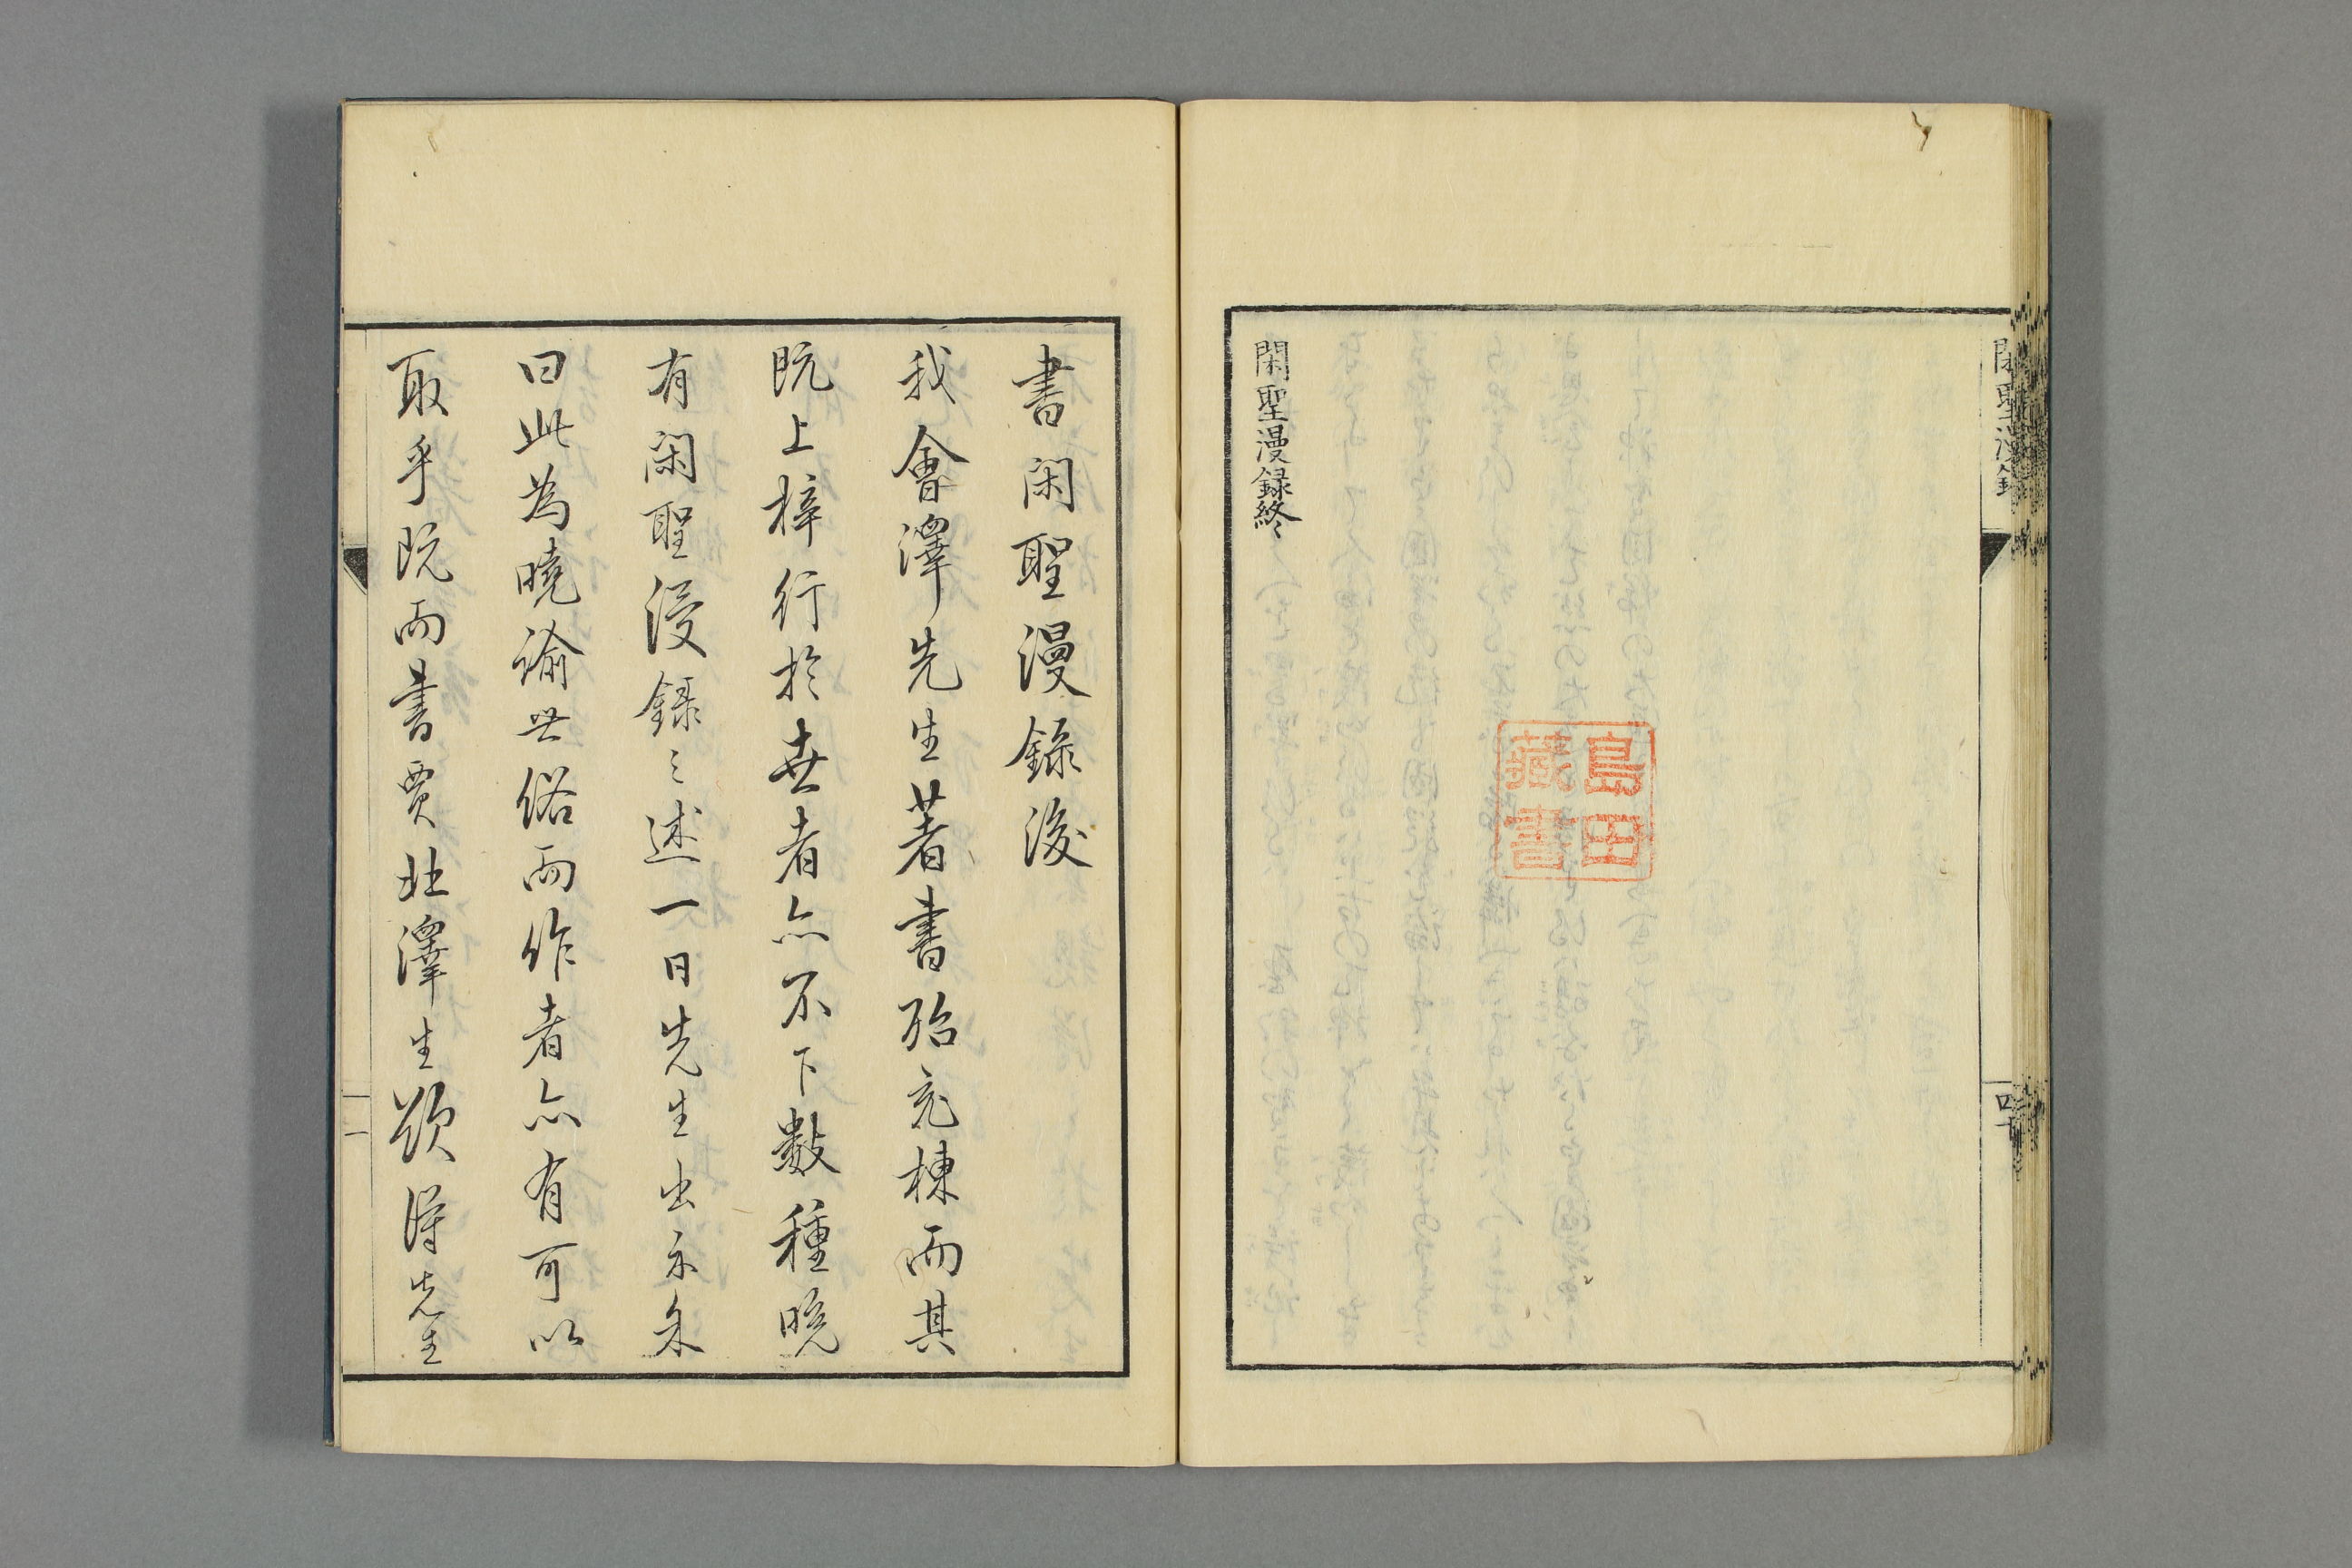 閑聖漫録
四十
島田
藏書
閑聖漫録終
書閑聖漫錄後
我會澤先生著書殆充棟而其
既上梓行於世者亦不下數種晩
有閑聖漫録之述一日先生出示余
曰此為曉諭世俗而作者亦有可以
取乎既而書賈北澤生欲得先生